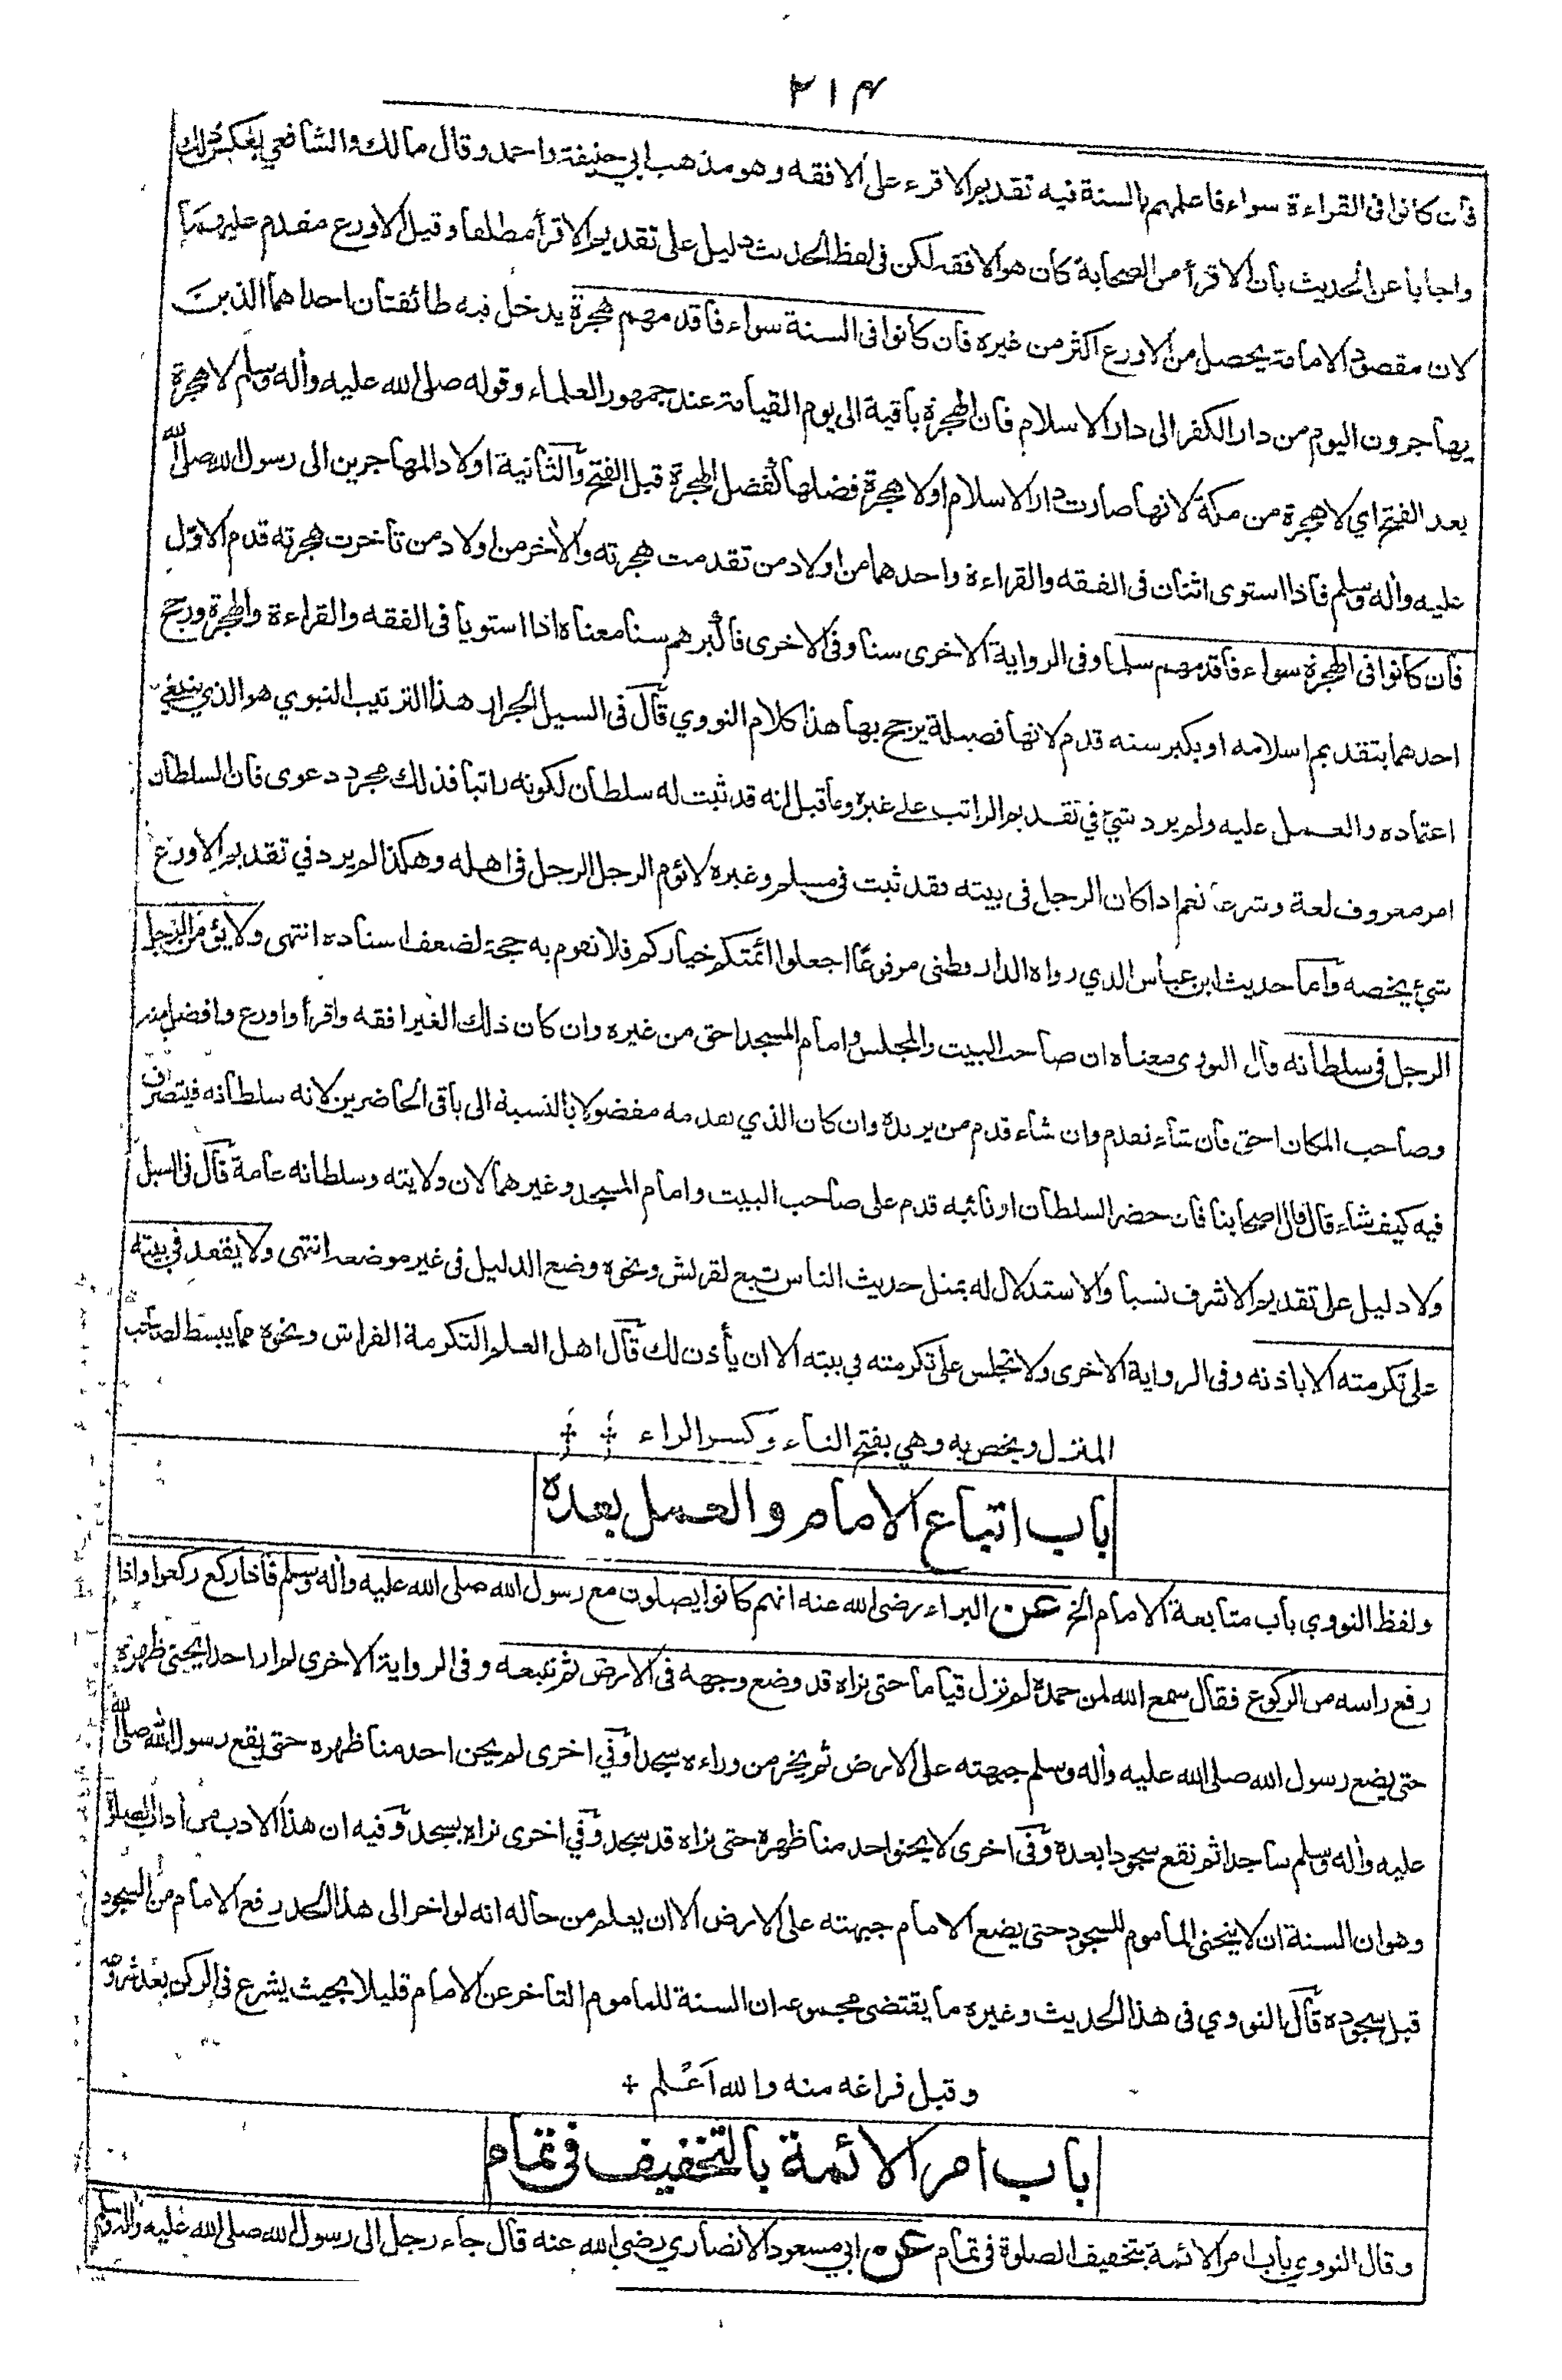 ٢١٤
فان كانوا فى القراءة سواء فاعلمهم بالسنة فيه تقديم الاقرء على الافقه وهو مذهب ابي حنيفة واحمد وقال مالك والشافعي بعكس ذلك
واجابا عن الحديث بان الاقرأ من الصحابة كان هو الافقه لكن فى لفظ الحديث دليل على تقديم الاقرأ مطلقا وقيل الاورع مقدم عليهما
لان مقصود الامامة يحصل من الاورع اكثر من غيره فان كانوا فى السنة سواء فاقدمهم هجرة يدخل فيه طائفتان احداهما الذين
يهاجرون اليوم من دار الكفر الى دار الاسلام فان الهجرة باقية الى يوم القيامة عند جمهور العلماء وقوله صلى الله عليه وأله وسلم لا هجرة
بعد الفتح اي لا هجرة من مكة لانها صارت دار الاسلام او لا هجرة فضلها كفضل الهجرة قبل الفتح والثانية اولاد المهاجرين الى رسول الله صلى الله
عليه وأله وسلم فاذا استوى اثنان فى الفقه والقراءة واحدهما من اولاد من تقدمت هجرته والأخر من اولاد من تأخرت هجرته قدم الاوّل
فان كانوا فى الهجرة سواء فاقدمهم سلما وفى الرواية الاخرى سنا وفى الاخرى فاكبرهم سنا معناه اذا استويا فى الفقه والقراءة والهجرة ورجح
احدهما بتقديم اسلامه او بكبر سنه قدم لانها فضيلة يرجح بها هذا كلام النووي قال فى السيل الجرار هذا الترتيب النبوي هو الذي ينبغي
اعتماده والعمل عليه ولم يرد شيء في تقديم الراتب على غيره وما قيل انه قد ثبت له سلطان لكونه راتبا فذلك مجرد دعوى فان السلطان
امر معروف لغة وشرعا نعم اذا كان الرجل فى بيته فقد ثبت فى مسلم وغيره لا يؤم الرجل الرجل فى اهله وهكذا لم يرد في تقديم الاورع
شيء يخصه وأما حديث ابن عباس الذي رواه الدارقطنى مرفوعًا اجعلوا ائمتكم خياركم فلا تقوم به حجة لضعف اسناده انتهى ولا يؤمن الرجل
الرجل فى سلطانه قال النووى معناه ان صاحب البيت والمجلس وامام المسجد احق من غيره وان كان ذلك الغير افقه واقرأ واورع وافضل منه
وصاحب المكان احق فان شاء تقدم وان شاء قدم من يريده وان كان الذي يقدمه مفضولا بالنسبة الى باقى الحاضرين لانه سلطانه فيتصرف
فيه كيف شاء قال قال اصحابنا فان حضر السلطان او نائبه قدم على صاحب البيت وامام المسجد وغيرهما لان ولايته وسلطانه عامة قال فى السيل
ولا دليل على تقديم الاشرف نسبا والاستدلال له بمثل حديث الناس تبع لقريش ونحوه وضع الدليل فى غير موضعه انتهى ولا يقعد في بيته
على تكرمته الا باذنه وفى الرواية الاخرى ولا تجلس على تكرمته في بيته الا ان يأذن لك قال اهل العلم التكرمة الفراش ونحوه مما يبسط لصاحب
المنزل ويخص به وهي بفتح التاء وكسر الراء
باب اتباع الامام والعمل بعده
ولفظ النووي باب متابعة الامام الخ عن البراء رضى الله عنه انهم كانوا يصلون مع رسول الله صلى الله عليه وأله وسلم فاذا ركع ركعوا واذا
رفع راسه من الركوع فقال سمع الله لمن حمده لم نزل قياما حتى نراه قد وضع وجهه فى الارض ثم نتبعه وفى الرواية الاخرى لم ار احدا يحنى ظهره
حتى يضع رسول الله صلى الله عليه وأله وسلم جبهته على الارض ثم يخر من وراءه سجدا وفي اخرى لم يحن احد منا ظهره حتى يقع رسول الله صلى الله
عليه وأله وسلم ساجدا ثم نقع سجودا بعده وفى اخرى لا يحنو احد منا ظهره حتى نراه قد سجد وفي اخرى نراه يسجد وفيه ان هذا الادب من أداب الصلوة
وهو ان السنة ان لا ينحنى الماموم للسجود حتى يضع الامام جبهته على الارض الا ان يعلم من حاله انه لو اخر الى هذا الحد رفع الامام من السجود
قبل سجوده قال النووي فى هذا الحديث وغيره ما يقتضى مجموعه ان السنة للماموم التاخر عن الامام قليلا بحيث يشرع فى الركن بعد شروعه
وقبل فراغه منه والله اَعْلم
باب امر الائمة بالتخفيف فى تمام
وقال النووي باب امر الائمة بتخفيف الصلوة فى تمام عن ابي مسعود الانصاري رضي الله عنه قال جاء رجل الى رسول الله صلى الله عليه وأله وسلم